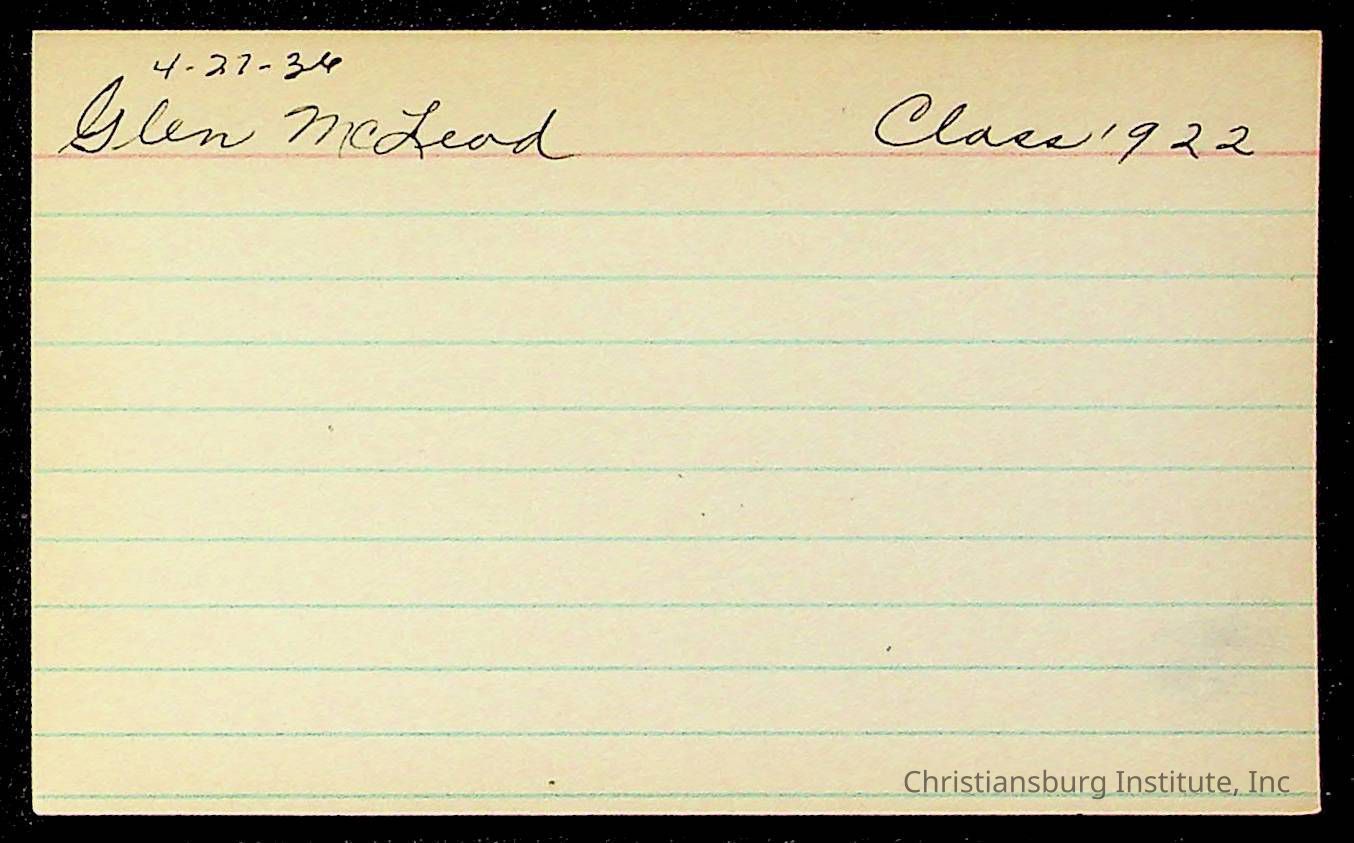 4-27-36
Glen McLeod Class 1922
Christiansburg Institute, Inc